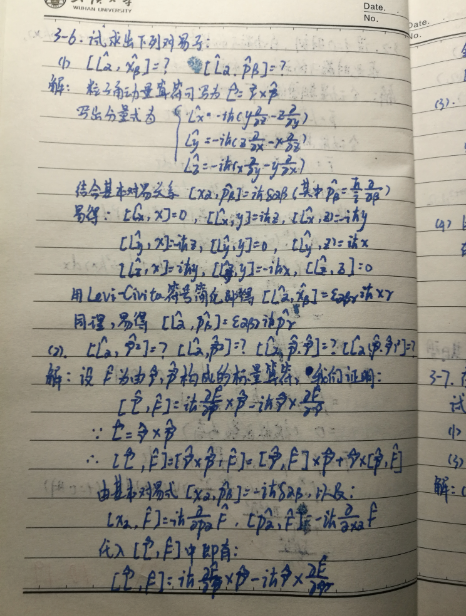 WUHAN UNIVERSITY
Date.
No.
3-6. 试求出下列对易子:
(1) [L̂α, x̂β]=? [L̂α, p̂β]=?
解: 粒子角动量算符可写为 L̂=r̂×p̂
写出分量式为 { L̂x=-iħ(y∂/∂z-z∂/∂y)
L̂y=-iħ(z∂/∂x-x∂/∂z)
L̂z=-iħ(x∂/∂y-y∂/∂x)
结合基本对易关系 [xα, p̂β]=iħδαβ (其中p̂β=ħ/i ∂/∂β)
易得: [L̂x, x]=0, [L̂x, y]=iħz, [L̂x, z]=-iħy
[L̂y, x]=-iħz, [L̂y, y]=0, [L̂y, z]=iħx
[L̂z, x]=iħy, [L̂z, y]=-iħx, [L̂z, z]=0
用Levi-Civita符号简化即得 [L̂α, x̂β]=εαβγiħxγ
同理, 易得 [L̂α, p̂β]=εαβγiħp̂γ
(2). [L̂α, r̂²]=? [L̂α, p̂²]=? [L̂α, r̂·p̂]=?
解: 设 F̂ 为由 r̂, p̂ 构成的标量算符, 我们证明:
[L̂, F̂]=iħ ∂F̂/∂p̂ ×p̂-iħr̂× ∂F̂/∂r̂
∵ L̂=r̂×p̂
∴ [L̂, F̂]=[r̂×p̂, F̂]=[r̂, F̂]×p̂+r̂×[p̂, F̂]
由基本对易式 [xα, p̂β]=-iħδαβ, 以及:
[xα, F̂]=iħ ∂/∂pα F̂, [p̂α, F̂]=-iħ ∂/∂xα F̂
代入 [L̂, F̂] 中即有:
[L̂, F̂]=iħ ∂F̂/∂p̂ ×p̂-iħr̂× ∂F̂/∂r̂
Date.
No.
(3).
(4)
3-7.
试
(1)
(3)
解: